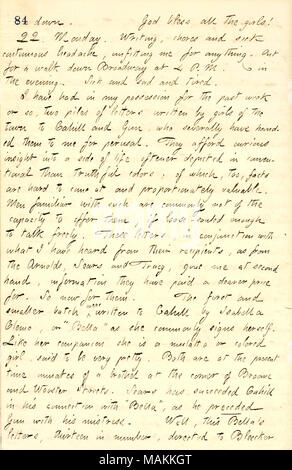 84 down. God bless all the girls!
22. Monday. Writing, chores and sick
continuous headache, unfitting me for anything. Out
for a walk down Broadway at 2 P.M. in
the evening. Sick and sad and tired.
I have had in my possession for the past week
or so, two piles of letters written by girls of the
town to Cahill and Gun, who severally have hand-
ed them to me for perusal. They afford curious
insight into a side of life oftener depicted in conven-
tional than truthful colors; of which, too, facts
are hard to come at and proportionately valuable.
Men familiar with such are commonly not of the
capacity to offer them, if base souled enough
to talk freely. These letters, in conjunction with
what I have heard from their recipients, as from
the Arnolds, Sears and Tracy, give me at second
hand, information they have paid a dearer price
for. So now for them. The first and
smaller batch were written to Cahill by Isabella
or "Bella" as she commonly signs herself.
Like her companion she is a mulatto or colored
girl, said to be very pretty. Both are at the present
time inmates of a brothel at the corner of Broome
and Wooster Streets. Sears has succeeded Cahill
in his connection with "Bella", as he preceded
Gun with his mistress. Well, this Bella's
letters, thirteen in number, directed to Bleecker
alamy
alamy
Image ID: MAKKGT
www.alamy.com